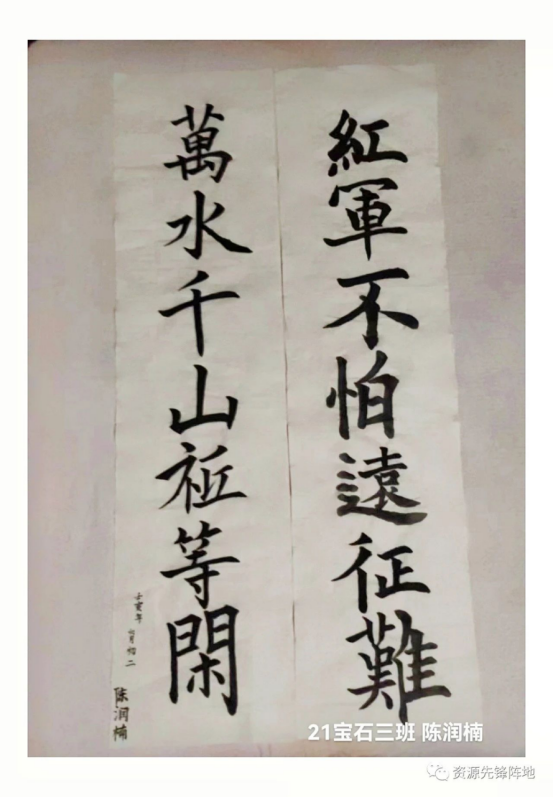 紅軍不怕遠征難
萬水千山祗等閑
壬寅年 七月初二
陈润楠
21宝石三班 陈润楠
资源先锋阵地